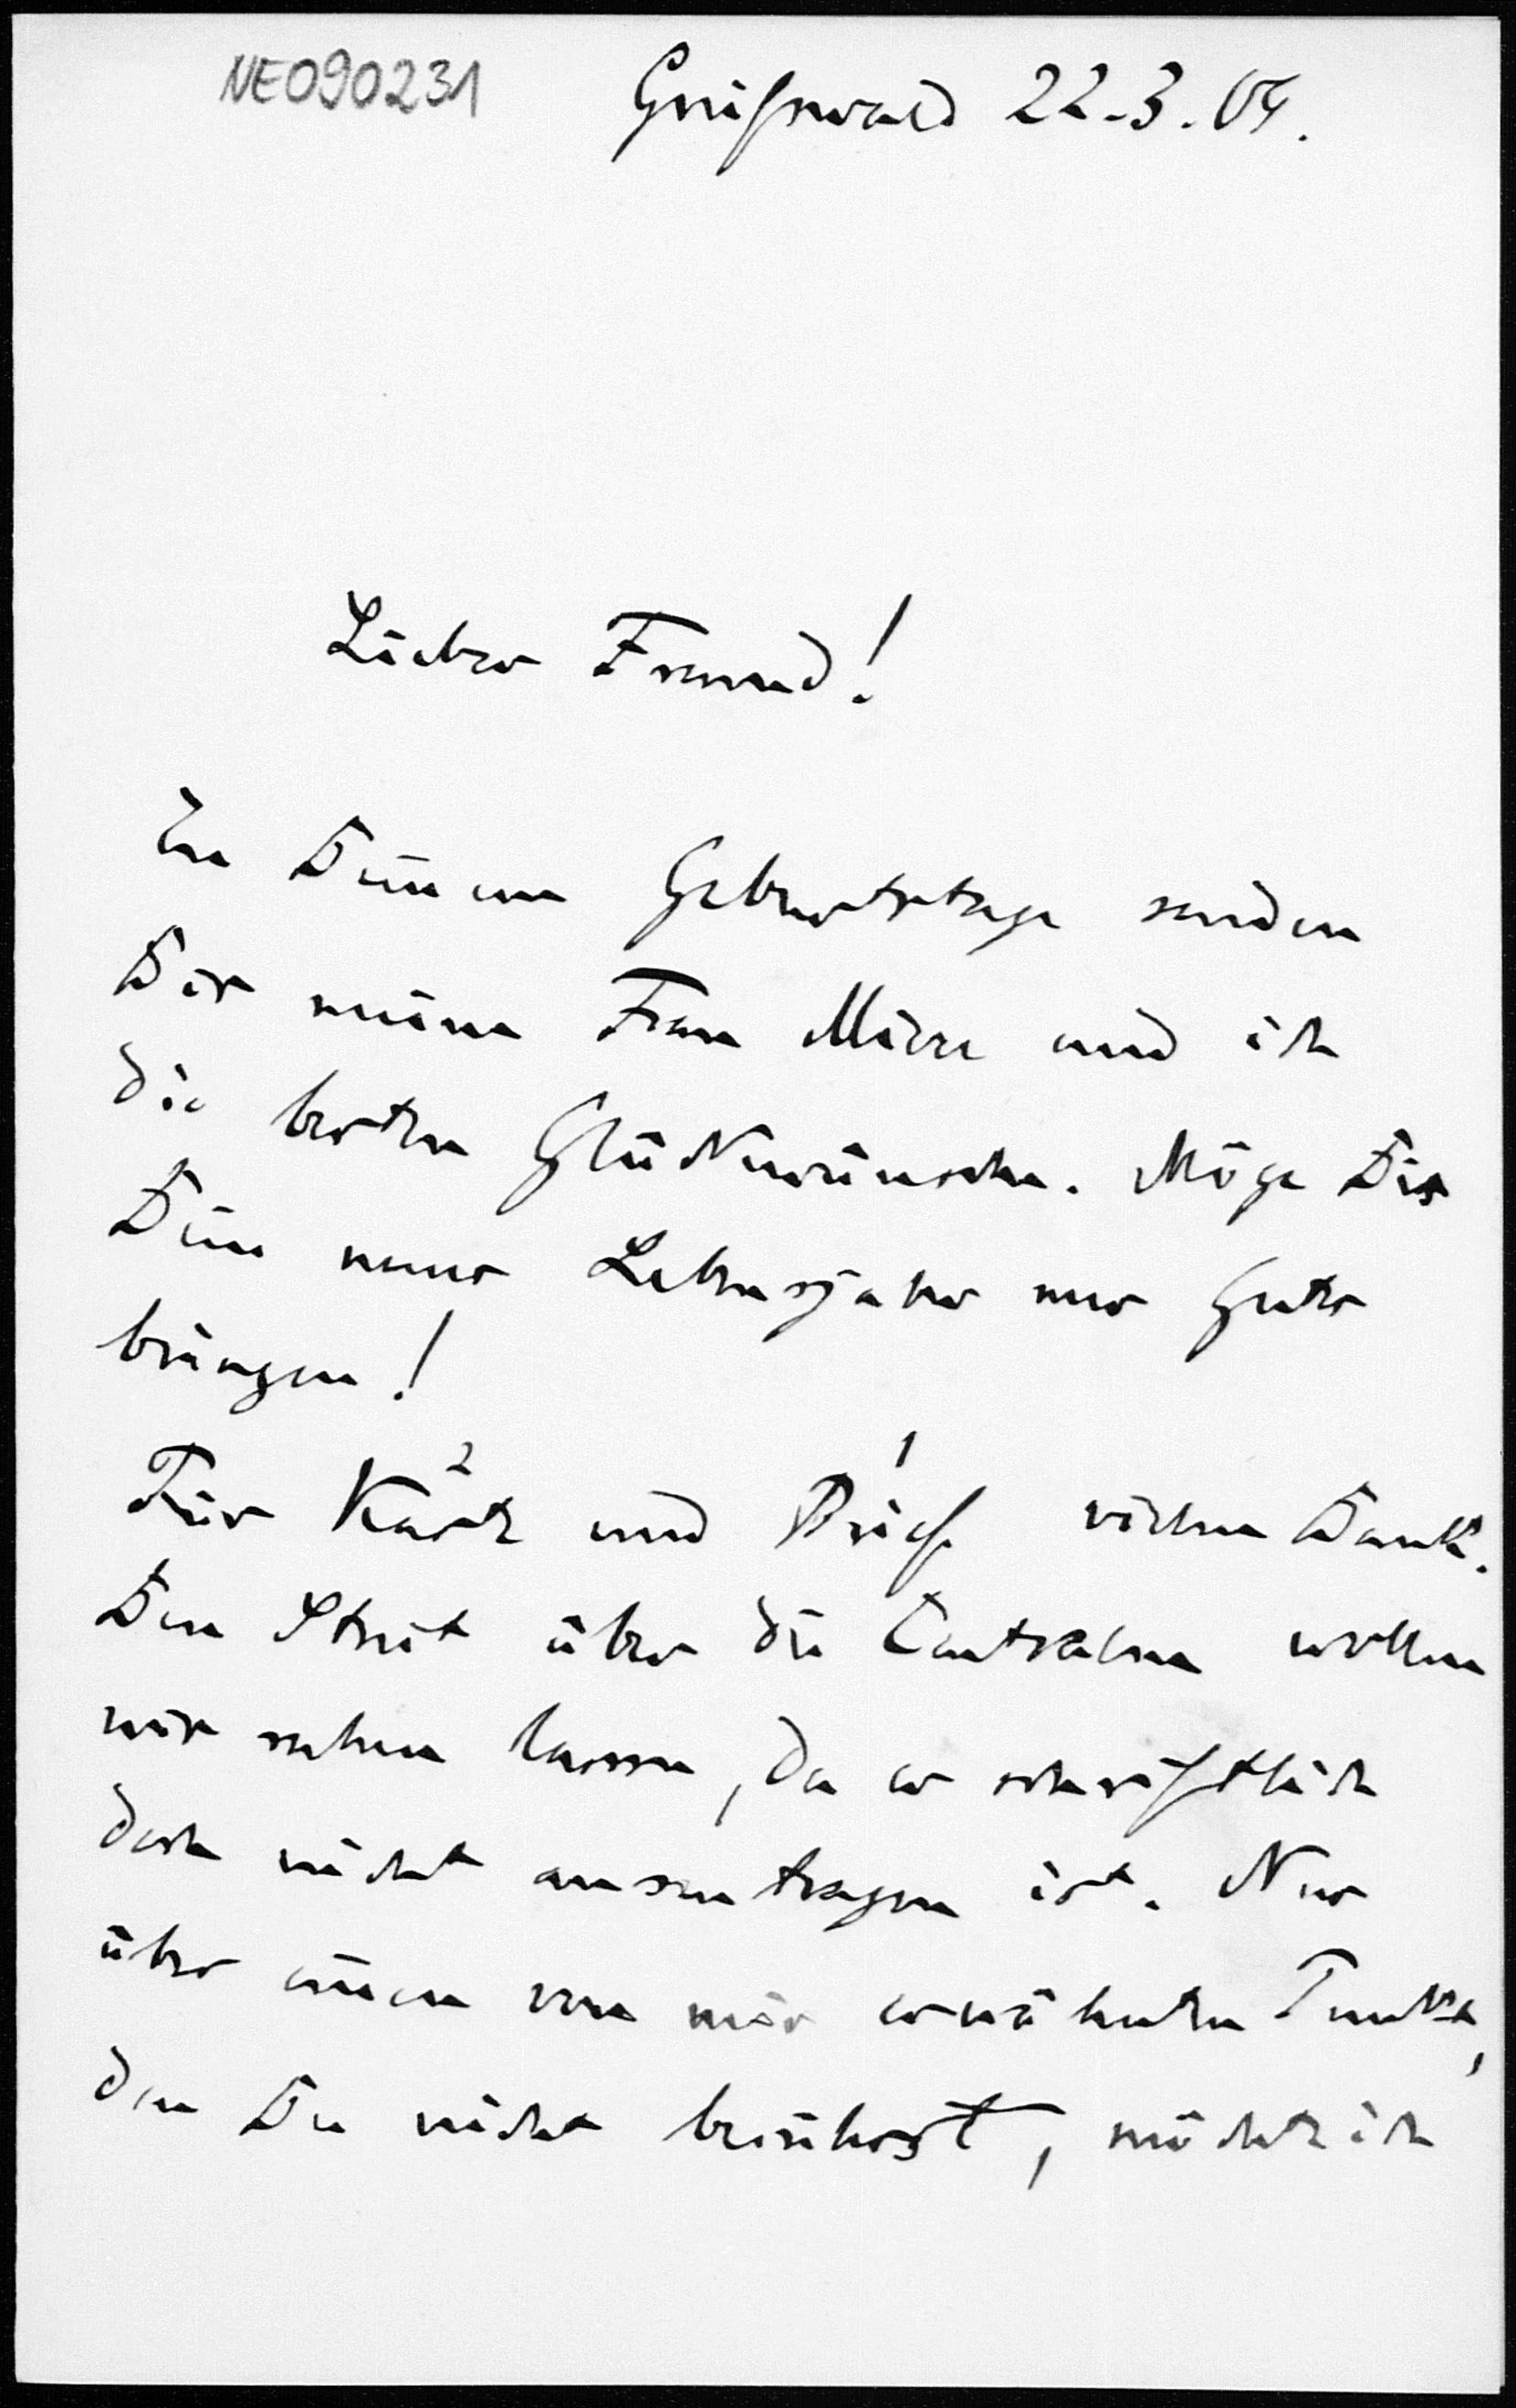 NE090231
Greifswald 22.3.04.
Lieber Freund!
Zu Deinem Geburtstage senden
Dir meine Frau Mieze und ich
die besten Glückwünsche. Möge Dir
Dein neues Lebensjahr nur Gutes
bringen!
Für Karte² und Brief¹ vielen Dank.
Den Streit über die Centralen wollen
wir ruhen lassen, da er schriftlich
doch nicht auszutragen ist. Nur
über einen von mir erwähnten Punkt,
den Du nicht berührst, möchte ich